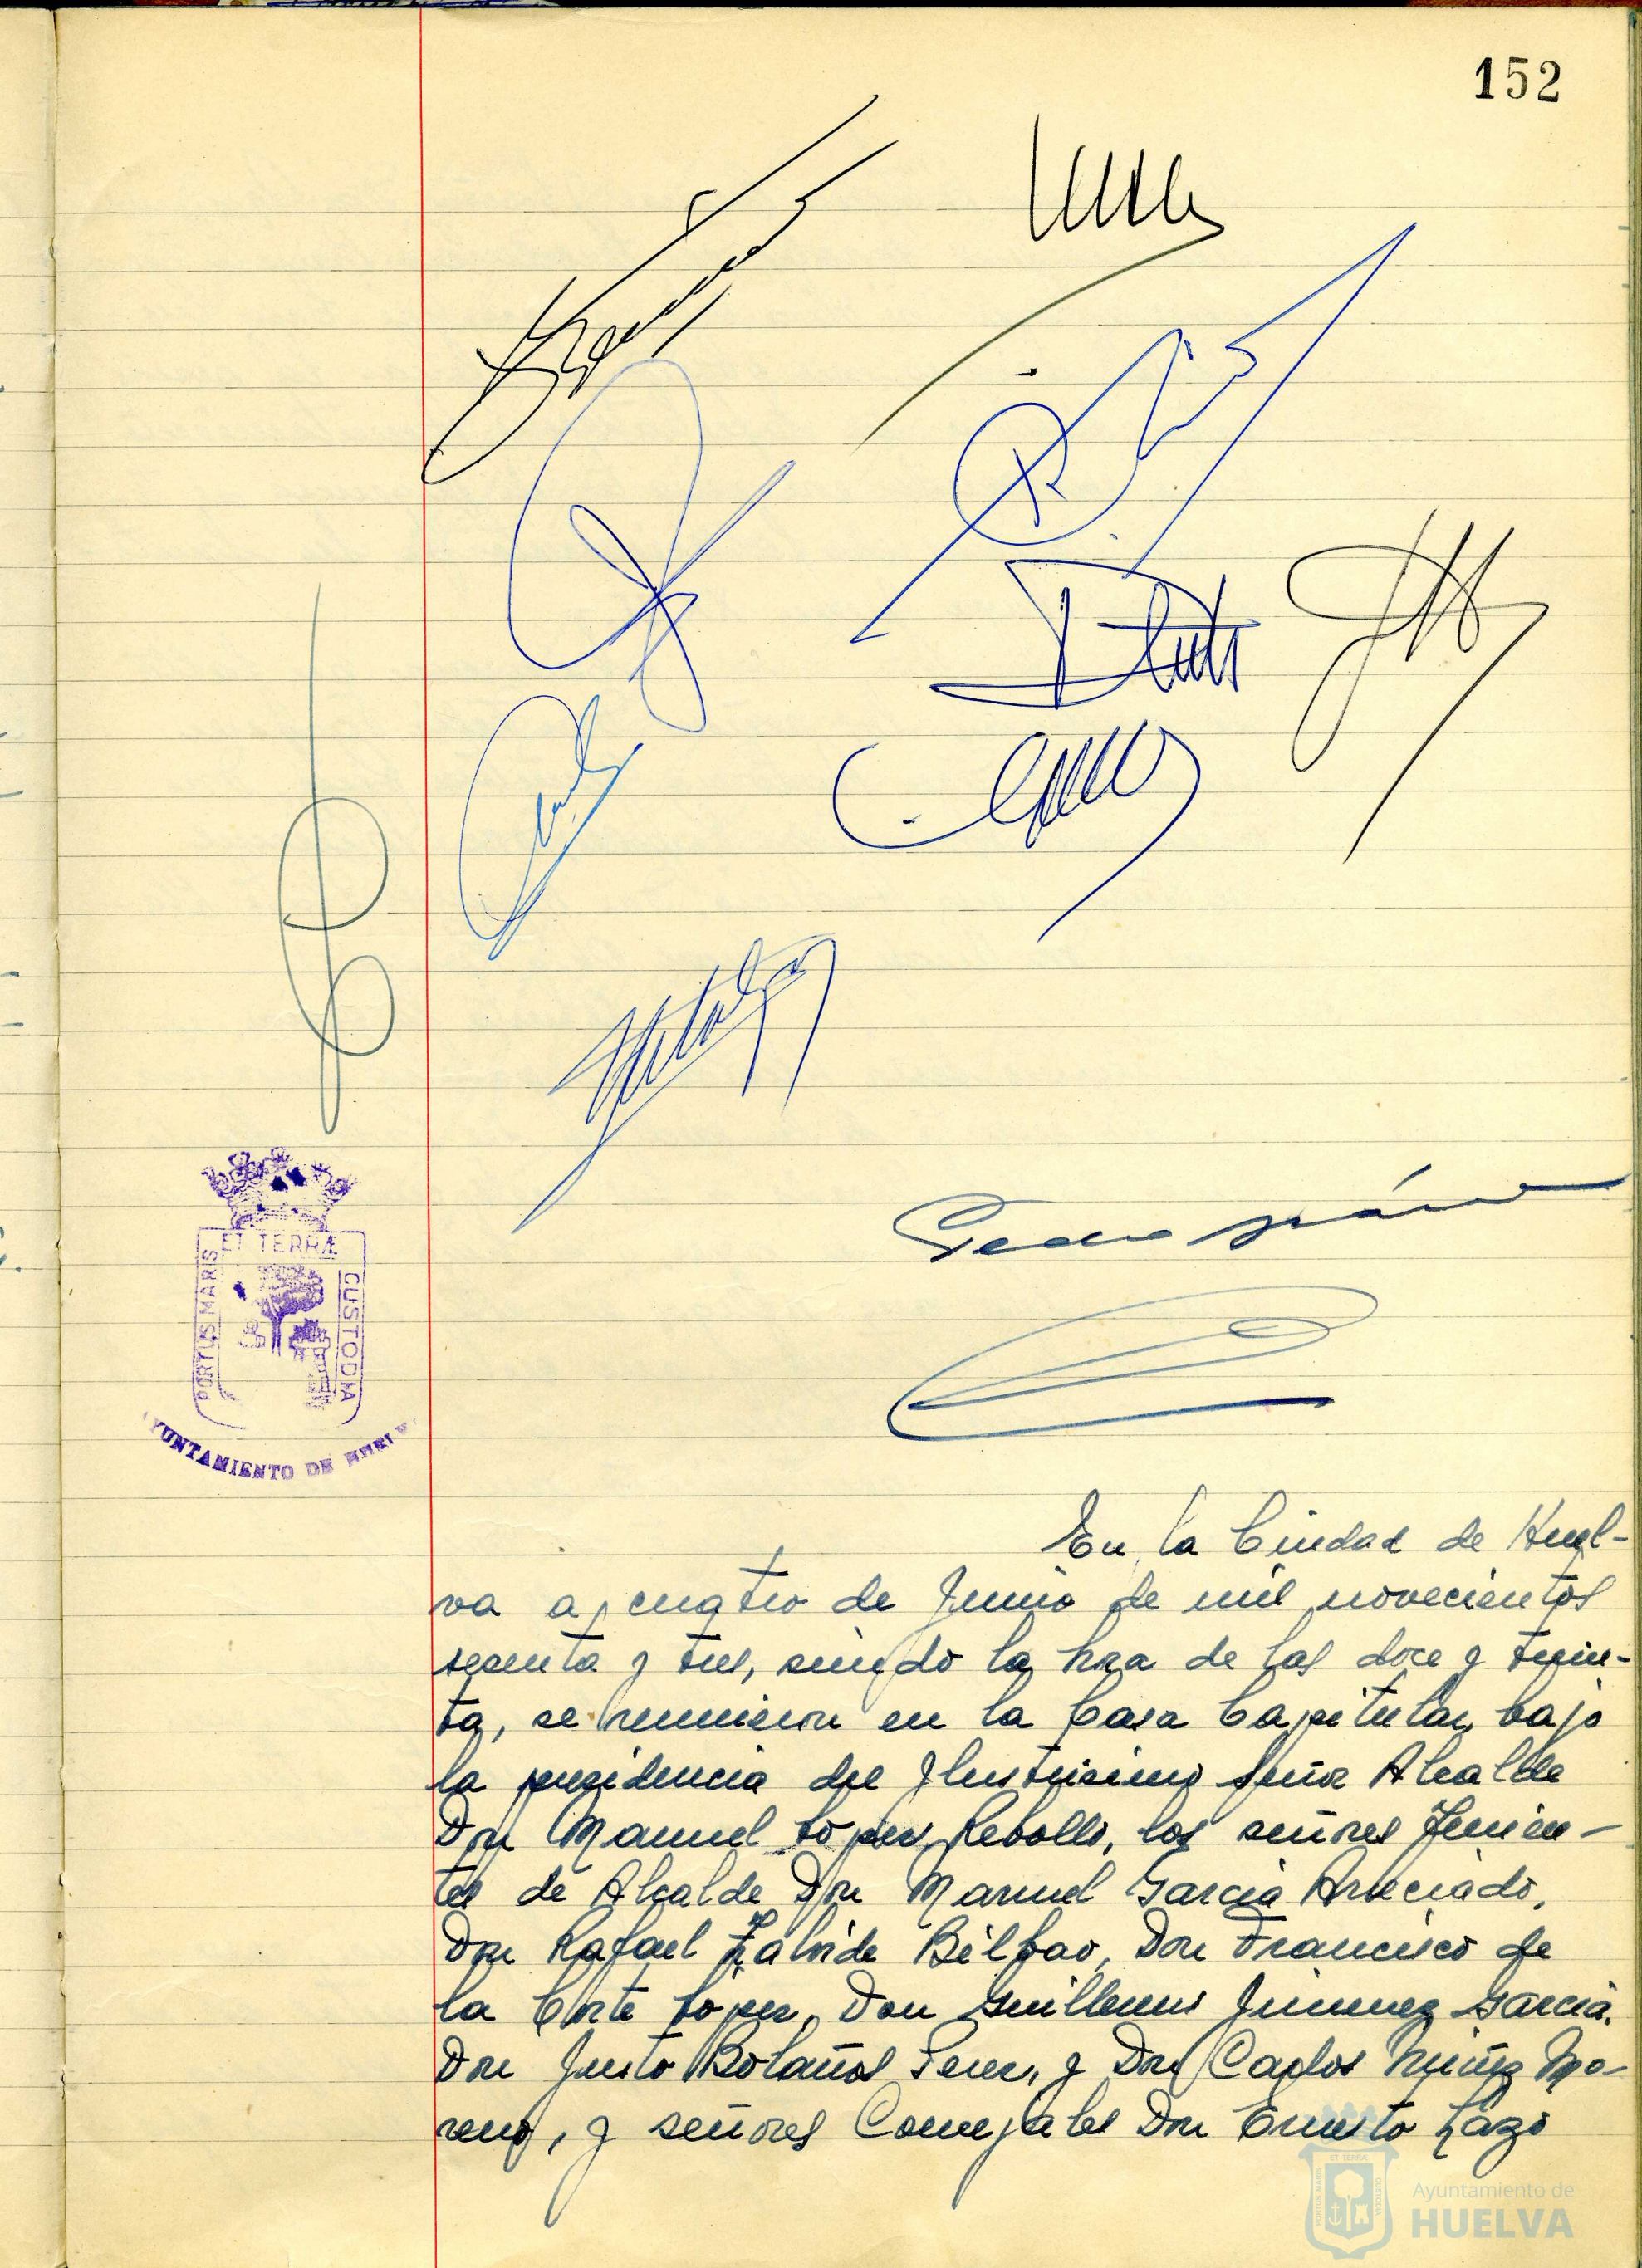 152
ET TERRÆ
PORTUS MARIS
CUSTODIA
YUNTAMIENTO DE
En la Ciudad de Huel-
va a cuatro de Junio de mil novecientos
sesenta y tres, siendo la hora de las doce y trein-
ta, se reunieron en la Casa Capitular, bajo
la presidencia del Ilustrisimo Señor Alcalde
Don Manuel Lopez Rebollo, los señores Tenien-
tes de Alcalde Don Manuel Garcia Arreciado,
Don Rafael Zalvide Bilbao, Don Francisco de
la Corte Lopez, Don Guillermo Jimenez Garcia,
Don Justo Bolaños Perez, y Don Carlos Núñez Mo-
reno, y señores Concejales Don Ernesto Lazo
Ayuntamiento de
HUELVA